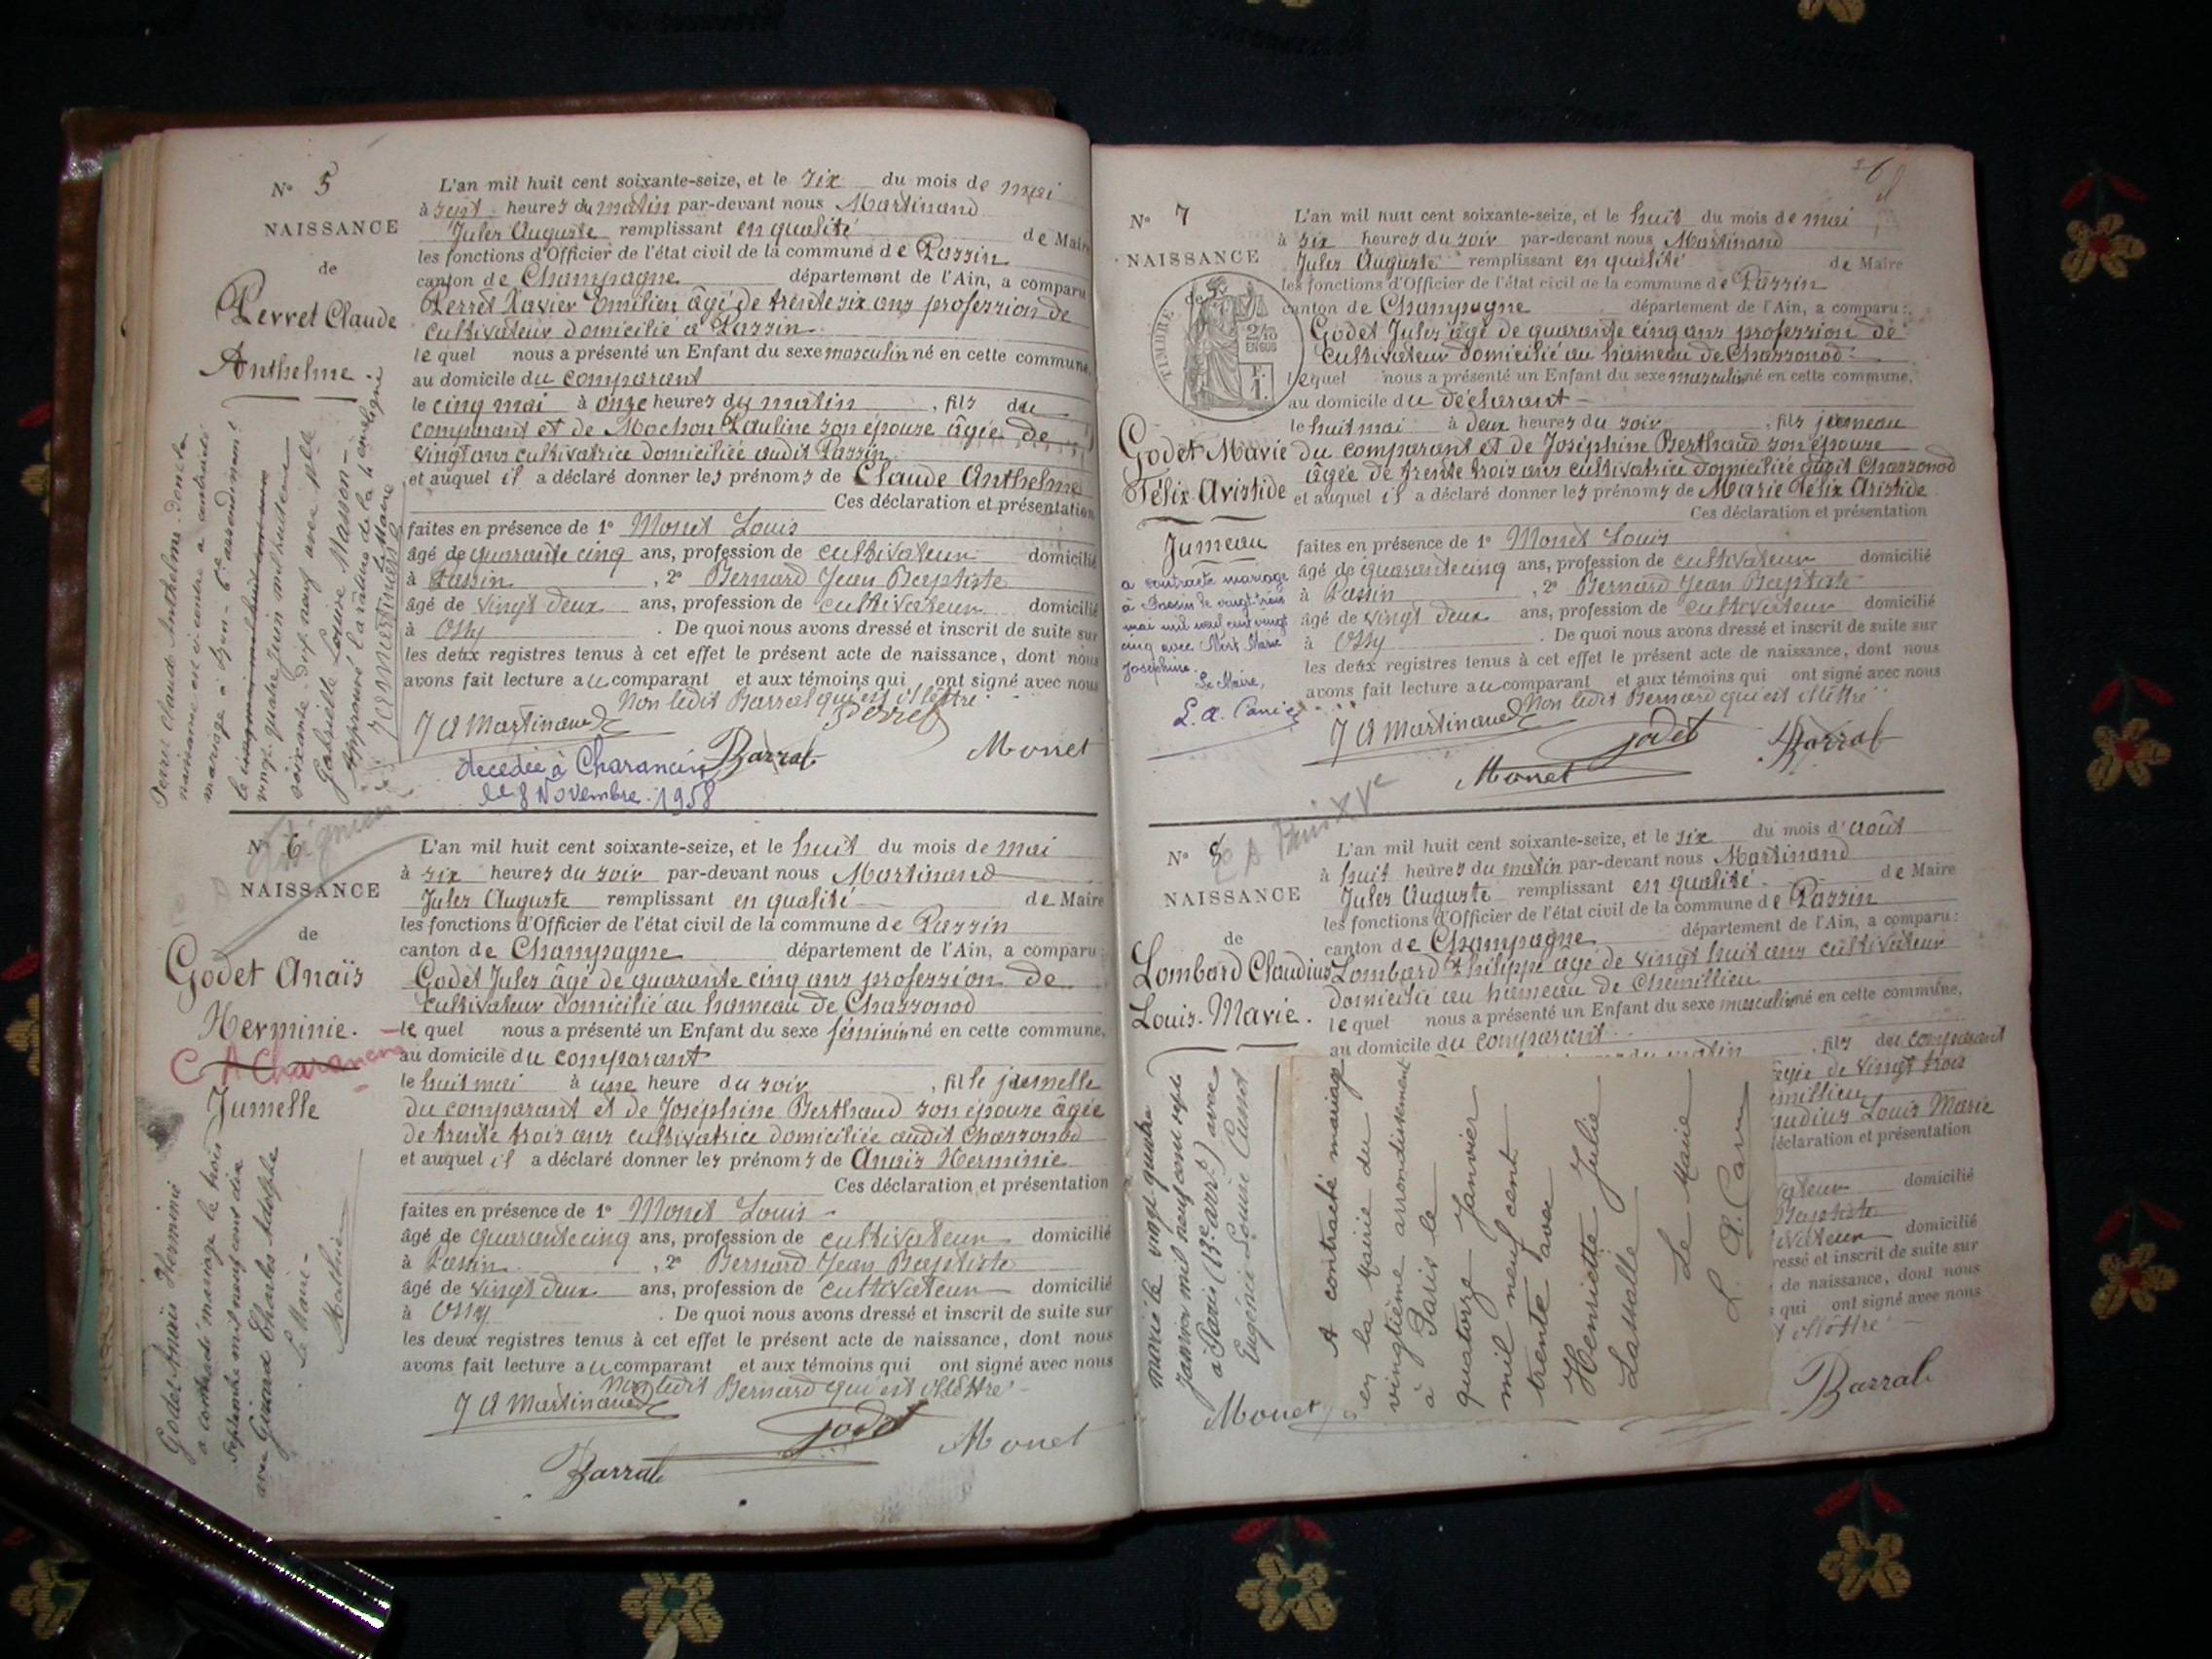 N° 5
NAISSANCE
de
Perret Claude
Anthelme
Perret Claude Anthelme dont la
naissance est ci-contre a contracté
mariage à Lyon - 6e arrondissement
vingt quatre juin mil huit cent
soixante dix neuf avec Melle
Gabrielle Louise Masson -
Approuvé la rature de la 4e ligne
Le Maire
L'an mil huit cent soixante-seize, et le six du mois de mai
à sept heures du matin par-devant nous Martinand
Jules Auguste remplissant en qualité de Maire
les fonctions d'Officier de l'état civil de la commune de Passin
canton de Champagne département de l'Ain, a comparu
Perret Xavier Emilien âgé de trente six ans profession de
cultivateur domicilié à Passin
lequel nous a présenté un Enfant du sexe masculin né en cette commune,
au domicile du comparant
le cinq mai à onze heures du matin, fils du
comparant et de Mochon Pauline son épouse âgée de
vingt ans cultivatrice domiciliée audit Passin
et auquel il a déclaré donner les prénoms de Claude Anthelme
Ces déclaration et présentation
faites en présence de 1° Monet Louis
âgé de quarante cinq ans, profession de cultivateur domicilié
à Passin, 2° Bernard Jean Baptiste
âgé de vingt deux ans, profession de cultivateur domicilié
à Ossy. De quoi nous avons dressé et inscrit de suite sur
les deux registres tenus à cet effet le présent acte de naissance, dont nous
avons fait lecture au comparant et aux témoins qui ont signé avec nous
Non ledit Barral qui est illettré
J A Martinand Perret
Barral Monet
décédée à Charancin
le 8 Novembre 1958
N° 6
NAISSANCE
de
Godet Anaïs
Herminie.
A Charancin
Jumelle
Godet Anaïs Herminie
a contracté mariage le trois
septembre mil neuf cent dix
avec Girard Charles Adolphe
Le Maire -
Mathieu
L'an mil huit cent soixante-seize, et le huit du mois de mai
à six heures du soir par-devant nous Martinand
Jules Auguste remplissant en qualité de Maire
les fonctions d'Officier de l'état civil de la commune de Passin
canton de Champagne département de l'Ain, a comparu :
Godet Jules âgé de quarante cinq ans profession de
cultivateur domicilié au hameau de Chassonod
lequel nous a présenté un Enfant du sexe féminin né en cette commune,
au domicile du comparant
le huit mai à une heure du soir, fille jumelle
du comparant et de Joséphine Berthaud son épouse âgée
de trente trois ans cultivatrice domiciliée audit Chassonod
et auquel il a déclaré donner les prénoms de Anaïs Herminie
Ces déclaration et présentation
faites en présence de 1° Monet Louis
âgé de quarante cinq ans, profession de cultivateur domicilié
à Passin, 2° Bernard Jean Baptiste
âgé de vingt deux ans, profession de cultivateur domicilié
à Ossy. De quoi nous avons dressé et inscrit de suite sur
les deux registres tenus à cet effet le présent acte de naissance, dont nous
avons fait lecture au comparant et aux témoins qui ont signé avec nous
Non ledit Bernard qui est illettré
J A Martinand Godet Monet
Barral
N° 7
NAISSANCE
de
TIMBRE
2/10
EN SUS
Godet Marie
Félix Aristide
Jumeau
a contracté mariage
à Passin le vingt trois
mai mil neuf cent vingt
cinq avec Marie
Joséphine.
Le Maire,
L. A.
L'an mil huit cent soixante-seize, et le huit du mois de mai
à six heures du soir par-devant nous Martinand
Jules Auguste remplissant en qualité de Maire
les fonctions d'Officier de l'état civil de la commune de Passin
canton de Champagne département de l'Ain, a comparu :
Godet Jules âgé de quarante cinq ans profession de
cultivateur domicilié au hameau de Chassonod
lequel nous a présenté un Enfant du sexe masculin né en cette commune,
au domicile du déclarant
le huit mai à deux heures du soir, fils jumeau
du comparant et de Joséphine Berthaud son épouse
âgée de trente trois ans cultivatrice domiciliée audit Chassonod
et auquel il a déclaré donner les prénoms de Marie Félix Aristide
Ces déclaration et présentation
faites en présence de 1° Monet Louis
âgé de quarante cinq ans, profession de cultivateur domicilié
à Passin, 2° Bernard Jean Baptiste
âgé de vingt deux ans, profession de cultivateur domicilié
à Ossy. De quoi nous avons dressé et inscrit de suite sur
les deux registres tenus à cet effet le présent acte de naissance, dont nous
avons fait lecture au comparant et aux témoins qui ont signé avec nous
Non ledit Bernard qui est illettré
J A Martinand Godet Barral
Monet
N° 8
NAISSANCE
de
Lombard Claudius
Louis-Marie.
marié le vingt-quatre
janvier mil neuf cent sept
à Paris (13e arrt) avec
Eugénie Louise Cunot
L'an mil huit cent soixante-seize, et le six du mois d'août
à huit heures du matin par-devant nous Martinand
Jules Auguste remplissant en qualité de Maire
les fonctions d'Officier de l'état civil de la commune de Passin
canton de Champagne département de l'Ain, a comparu :
Lombard Philippe âgé de vingt huit ans cultivateur
domicilié au hameau de Chemillieu
lequel nous a présenté un Enfant du sexe masculin né en cette commune,
au domicile du comparant
du matin, fils du comparant
âgée de vingt trois
emillieu
audius Louis Marie
déclaration et présentation
domicilié
Baptiste
ivateur domicilié
ressé et inscrit de suite sur
de naissance, dont nous
qui ont signé avec nous
illettré
A contracté mariage
en la Mairie du
vingtième arrondissement
à Paris le
quatorze Janvier
mil neuf cent
trente avec
Henriette Julie
Lassalle
Le Maire
L. A.
Monet Barral